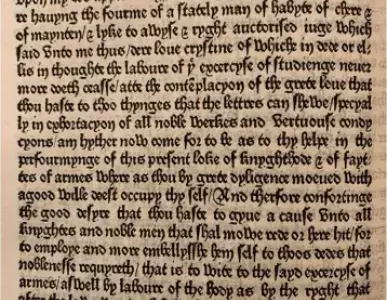 re hauyng the fourme of a stately man of habyte of chere &
of maynten/ & lyke to a wyse & ryght auctorised iuge which
said vnto me thus/dere loue crystine of whiche in dede or el/
lis in thoughte the laboure of yͤ excercyse of studienge neuer
more doeth ceasse/ atte the contẽplacyon of the grete loue that
thou haste to thoo thynges that the lettres can shewe/ specyal
ly in exhortacyon of all noble werkes and vertuouse condy
cyons/ am hyther now come for to be as to thy helpe in the
perfourmynge of this present boke of knyghthode & of fayt/
tes of armes where as thou by grete dylygence moeued with
a good wille doest occupy thy self/ And therfore confortinge
the good desyre that thou haste to gyue a cause vnto all
knyghtes and noble men that shal mowe rede or here hit/ for
to employe and more embellysshe hem self to thoos dedes that
noblenesse requyreth/ that is to wite to the sayd excercyse of
armes/ aswell by laboure of the body as by the ryght that